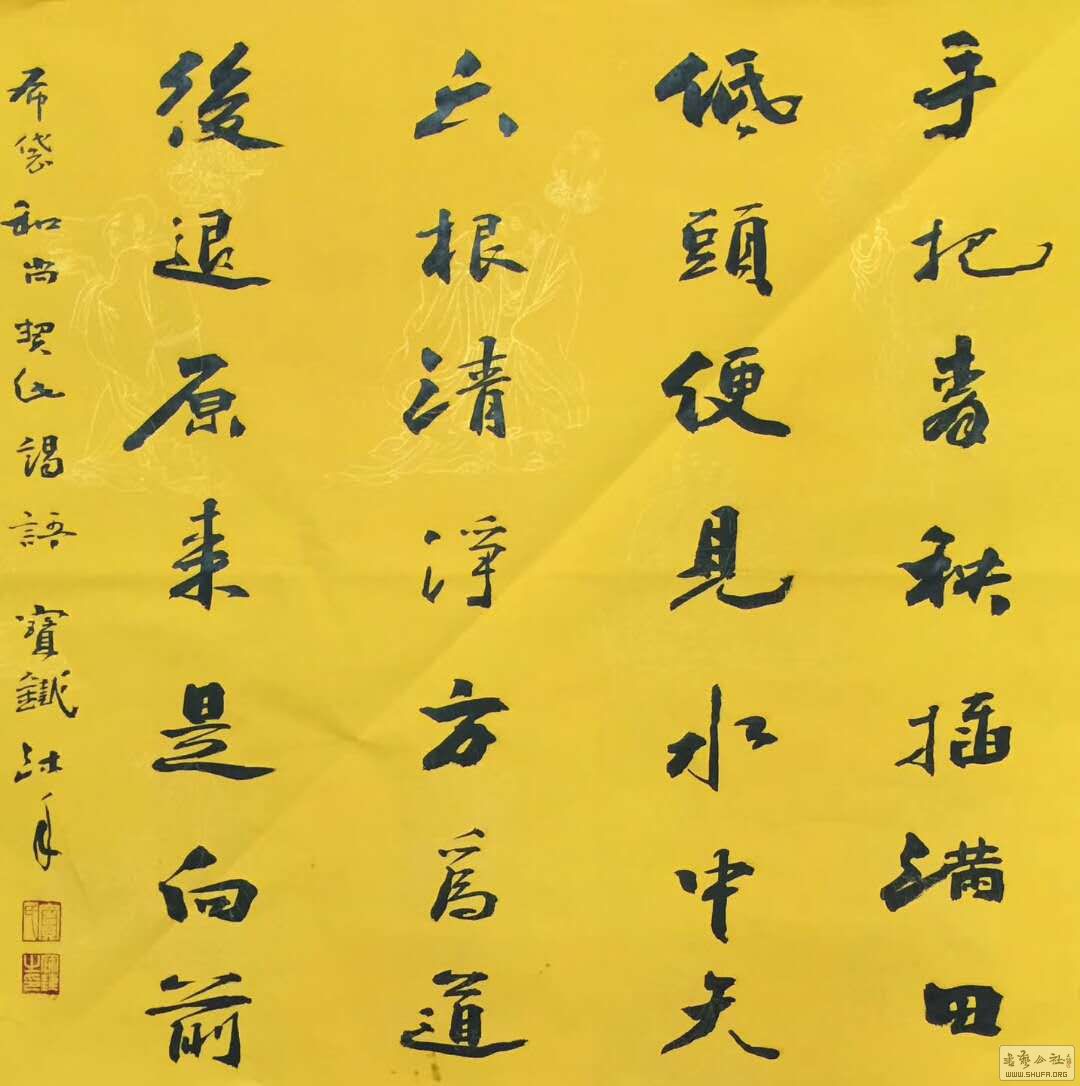 手把青秧插满田
低頭便見水中天
六根清淨方為道
後退原來是向前
布袋和尚契此謁語 寶鐵沐手
书艺公社
WWW.SHUFA.ORG